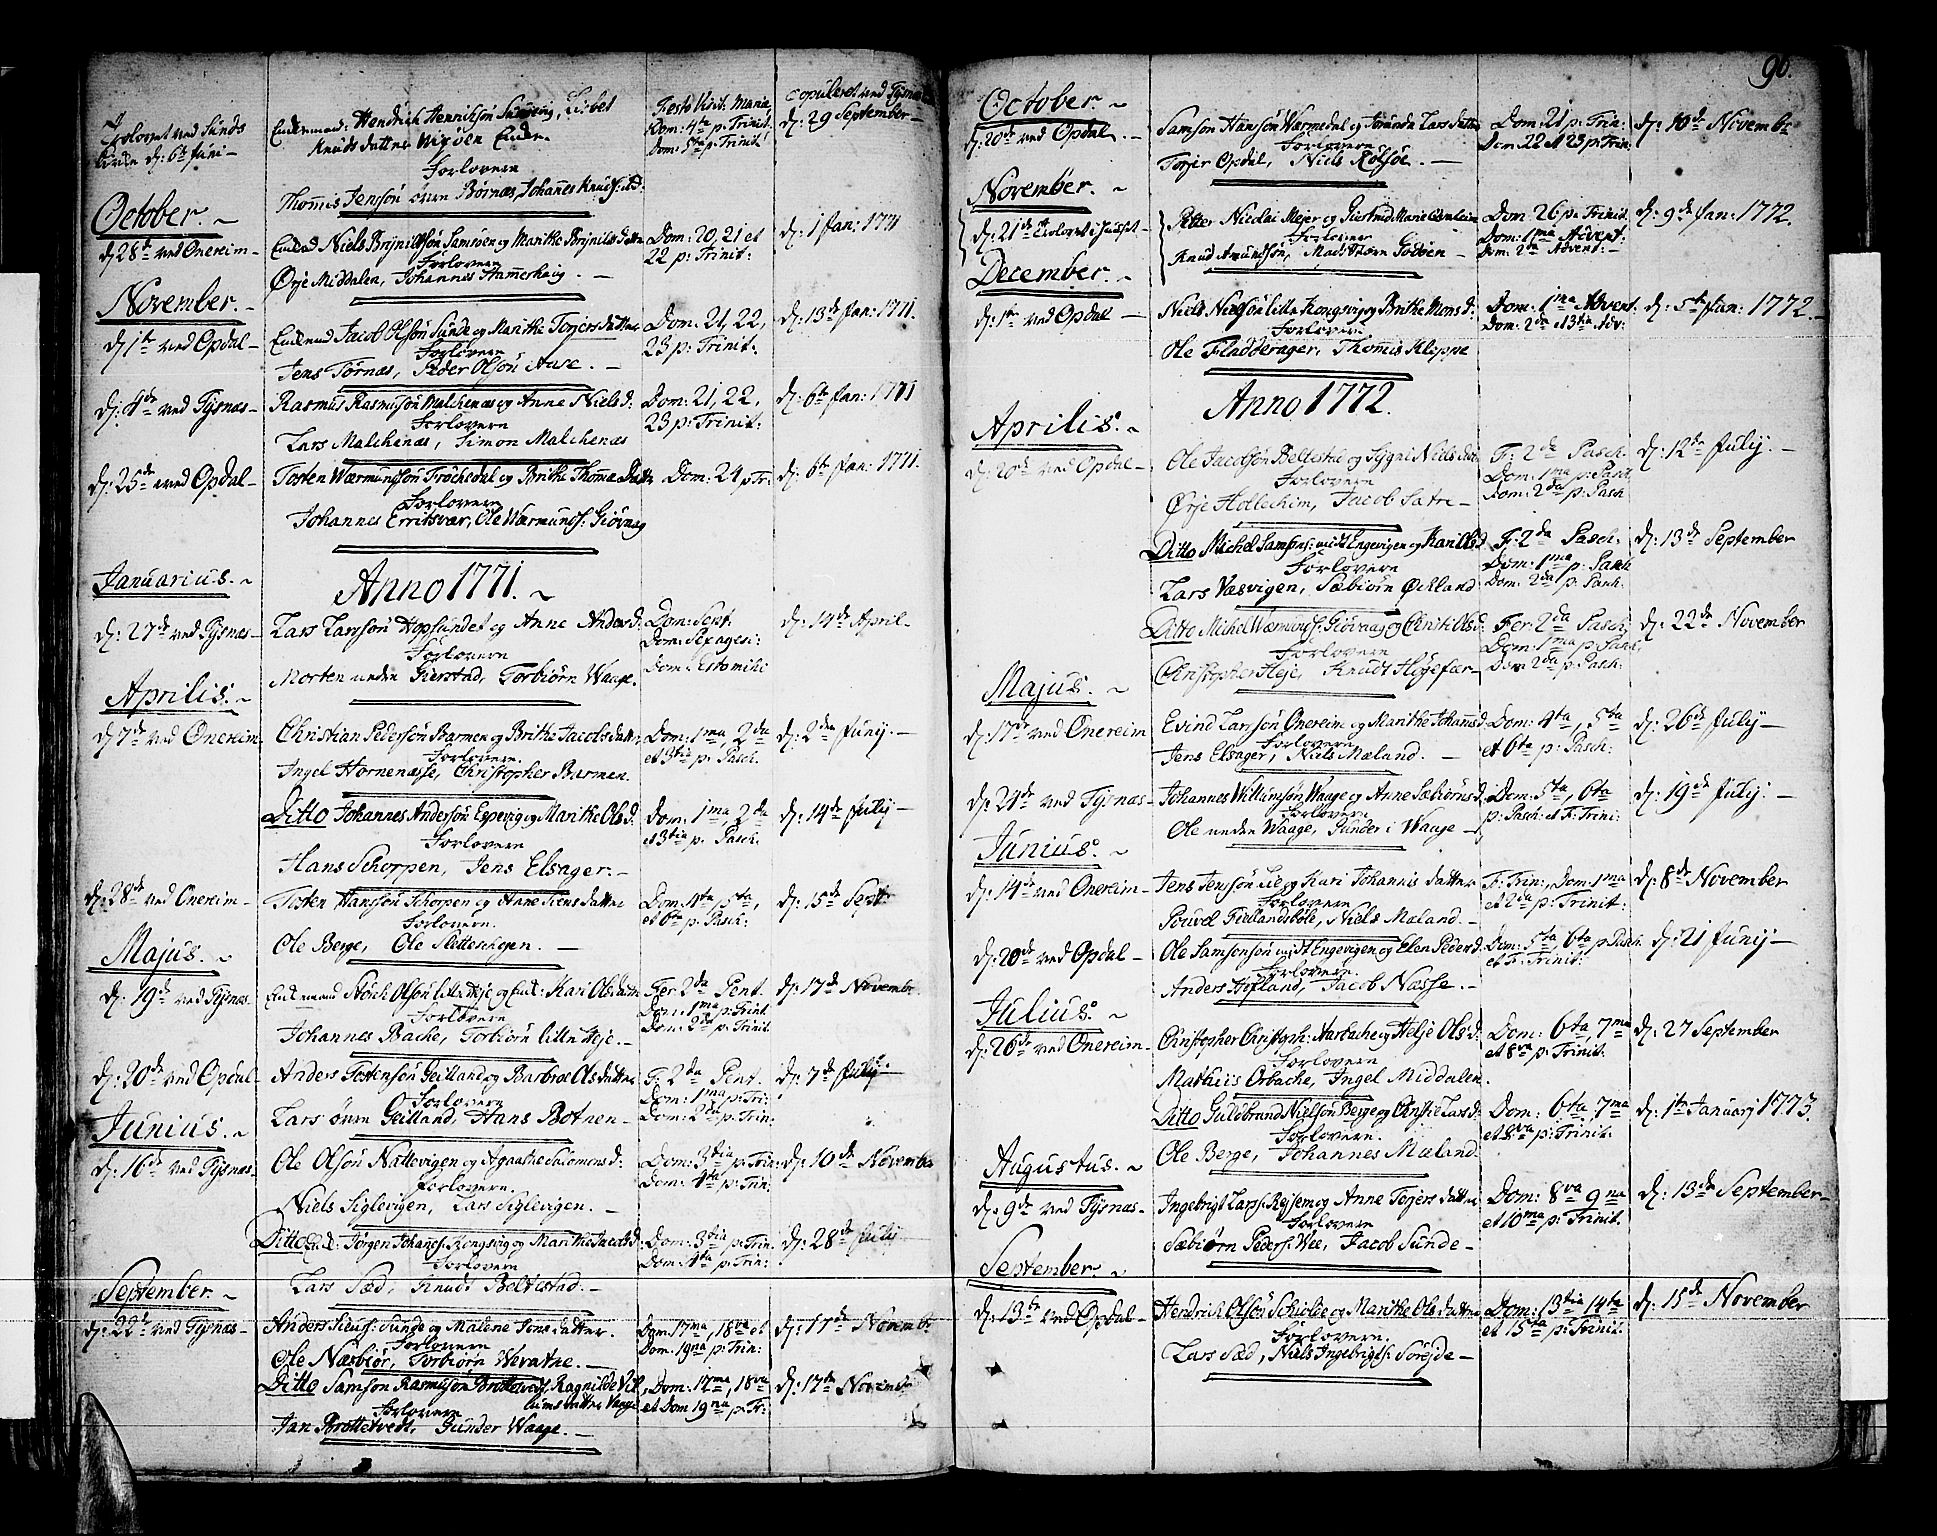 Trolovet ved Sunds Kirke d: 6te Juni –
Enkemand: Hendrich Henrikson, Lisbet
Knuds datter Migöen Enke.
Forlovere
Thomis Jensön övre Börnæs, Johannes Knuds:
Festo Visit. Mariæ
Dom: 4ta p. Trinit.
Dom: 5ta p: Trinit:
copuleret ved Tysnæs
d: 29 September –
October. ~
d 28de ved Onereim –
Niels Brynildsön Samröen og Marithe Brynilds datter
Forlovere
Örje Middalen, Johannes Hammerhaug. –
Dom: 20, 21 et
22 p: Trinit:
d: 1 Jan: 1771
November. –
d 1te ved Opdal –
Enkemd Jacob Olsön Sunde og Marithe Torjers datter
Forlovere
Jens Törnæs, Peder Olsön Aase. –
Dom: 21, 22,
23 p: Trinit:
d: 13de Jan: 1771.
d: 4de ved Tysnæs –
Rasmus Rasmusön Malchenæs og Anne Niels d:
Forlovere
Lars Malchenæs, Simon Malchenæs
Dom: 21, 22,
23 p: Trinit:
d: 6te Jan: 1771
d: 25de ved Opdal –
Tosten Wærmundsön Tröchedal og Brithe Thomæ Datter
Forlovere
Johannes Erritsvær, Ole Wærmunds: Giövnag
Dom: 24 p Tr:
d: 6te Jan: 1771.
Anno 1771. ~
Januarius. ~
d: 27de ved Tysnæs –
Lars Larsön Hopsundet og Anne Anders d:
Forlovere
Morten neden Gierstad, Torbiörn Waage.
Dom: Sept.
Dom: Sexages:
Dom: Estomihi
d: 14de April –
Aprilis. ~
d 7de ved Onereim
Christian Pedersön Barmen og Brithe Jacobs datter
Forlovere.
Ingel Hornenæsse, Christopher Barmen.
Dom: 1ma, 2da
et 3tia p: Pasch.
d: 2den Junij. –
Ditto Johannes Andersön Espevig og Marithe Ols d:
Forlovere
Hans Schorpen, Jens Elsager. –
Dom: 1ma, 2da
et 3tia p: Pasch.
d: 14de Julij –
d: 28de ved Onereim –
Tosten Hansön Schorpen og Anne Siens datter
Forlovere.
Ole Berge, Ole Slettenhogen. –
Dom: 4ta, 5ta,
et 6ta p: Pasch:
d: 15de Sept:
Majus. ~
d: 19de ved Tysnæs.
Enkemand Störk Olsön lille Heje og Enk: Kari Ols datter
Forlovere
Johannes Bache, Torbiörn lille Heje. –
Fer: 2da Pent.
Dom: 1ma p: Trinit
Dom: 2da p: Trinit
d: 17de Novembr.
d: 20de ved Opdal –
Anders Tostensön Geilland og Barbroe Ols datter
Forlovere
Lars övre Geilland, Hans Botnen.
F: 2da Pent.
Dom: 1ma p: Tri:
Dom: 2da p: Trin:
d: 7de Julij –
Junius. ~
d: 16de ved Tysnæs –
Ole Olsön Nattevigen og Agaathe Salomons d:
Forlovere.
Niels Siglevigen, Lars Siglevigen. –
Dom: 3tia p: Trin:
Dom: 4ta p: Trin:
d: 10de November
Ditto Enk: Jörgen Johanes: Kongsvig og Marithe Jacobs d:
Forlovere
Lars Sæd, Knudt Beltestad. –
Dom: 3tia p: Trin.
Dom: 4ta p: Trin:
d: 28de Julij
September. ~
d: 22de ved Tysnæs –
Anders Siurs: Sunde og Malene Jens datter.
Forlovere
Ole Næsbiör, Torbiörn Wevatne. –
Dom. 17ma, 18va et
Dom. 19na p: Trin:
d: 17de Novemb:
Ditto Samson Rasmusön Brottetvedt, Ragnilde Vil
lums datter Waage
Forlovere
Jan Brottetvedt, Gunder Waage. –
Dom: 17ma, 18va
et Dom 19na p: Tr:
d: 17de Novemb
90.
October. ~
d: 20de ved Opdal. –
Samson Hansön Wærmedal og Jorunda Lars datter
Forlovere
Torjer Opdal, Niels Rolsöe. –
Dom: 21 p: Trin:
Dom: 22 et 23 p: Trin:
d: 10de Novembr
November. ~
d: 21de Trolovet i huset –
Petter Nicolai Mejer og Giertrud Marie
Forlovere
Knud Amundsön, Mads Godöen –
Dom: 26 p: Trinit.
Dom: 1ma Advent:
Dom: 2da Advent: –
d: 9de Jan: 1772.
December. ~
d: 1te ved Opdal –
Niels Nielsön lille Kongsvig og Brithe Mons d:
Forlovere
Ole Fladderager, Thomis Klippe
Dom: 1ma Advent:
Dom: 2da et 3tia Adv:
d: 5te Jan: 1772. –
Anno 1772.
Aprilis. ~
d: 20de ved Opdal –
Ole Jacobsön Beltestad og Sygni Niels dat:
Forlovere
Örje Hollekim, Jacob Satre –
F: 2da Pasch
Dom: 1ma p: Pasch
Dom: 2da p: Pasch
d: 12te Julij. –
Ditto Michel Samsons: midt Engevigen og Kari Ols d
Forlovere
Lars Vaesvigen, Sæbiörn Öckland
F: 2da Pasch:
Dom: 1ma p: Pasch
Dom: 2da p: Pasch:
d: 13de September
Ditto Michel Wærmunds: Giövnag og Christi Ols d:
Forlovere
Christopher Heje, Knudt Högefær –
Fer: 2da Pasch,
Dom: 1ma p: Pasc:
Dom: 2da p: Pasch:
d: 22de November
Majus. ~
d. 17de ved Onereim
Evind Larsön Onereim og Marithe Johans d.
Forlovere
Jens Elsager, Niels Mæland. –
Dom: 4ta, 5ta
et 6ta p: Pasch:
d: 26de Julij –
d: 24de ved Tysnæs –
Johannes Willumsön Waage og Anne Sæbiörns d.
Forlovere
Ole neden Waage, Gunder i Waage –
Dom: 5ta, 6ta
p: Pasch: et F: Trini:
d: 19de Julij –
Junius. ~
d: 14de ved Onereim –
Jens Jensön Lie og Kari Johannis datter
Forlovere
Povel Fiellandsböle, Niels Mæland –
F: Trin:, Dom: 1ma
et 2da p: Trinit:
d: 8de November
d: 20de ved Opdal –
Ole Samsonsön midt Engevigen og Elen Peders d:
Forlovere.
Anders Hifland, Jacob Næsse. –
Dom: 5ta, 6ta p: Pasch.
et F: Trinit:
d: 21 Junij –
Julius. ~
d: 26de ved Onereim –
Christopher Christoph: Aarbache og Helje Ols d:
Forlovere
Mathiis Orbache, Ingel Middalen.
Dom: 6ta, 7ma
et 8va p: Trinit.
d: 27 September
Ditto Guldbrand Nielsön Berge og Christie Lars d:
Forlovere.
Ole Berge, Johannes Mæland
Dom: 6ta, 7ma
et 8va p: Trinit:
d: 1te Januarj 1773.
Augustus. ~
d: 9de ved Tysnæs –
Ingebrigt Lars: Rejsem og Anne Tejers datter
Forlovere
Sæbiörn Peders: Wee, Jacob Sunde –
Dom: 8va 9na
et 10ma p: Trinit.
d: 13de September –
September. ~
d: 13de ved Opdal –
Hendrich Olsön Schiolie og Marithe Ols datter
Forlovere.
Lars Sæd, Niels Ingebrigts: Sörejde –
Dom: 13tia 14ta
et 15ta p: Trinit.
d: 15de November